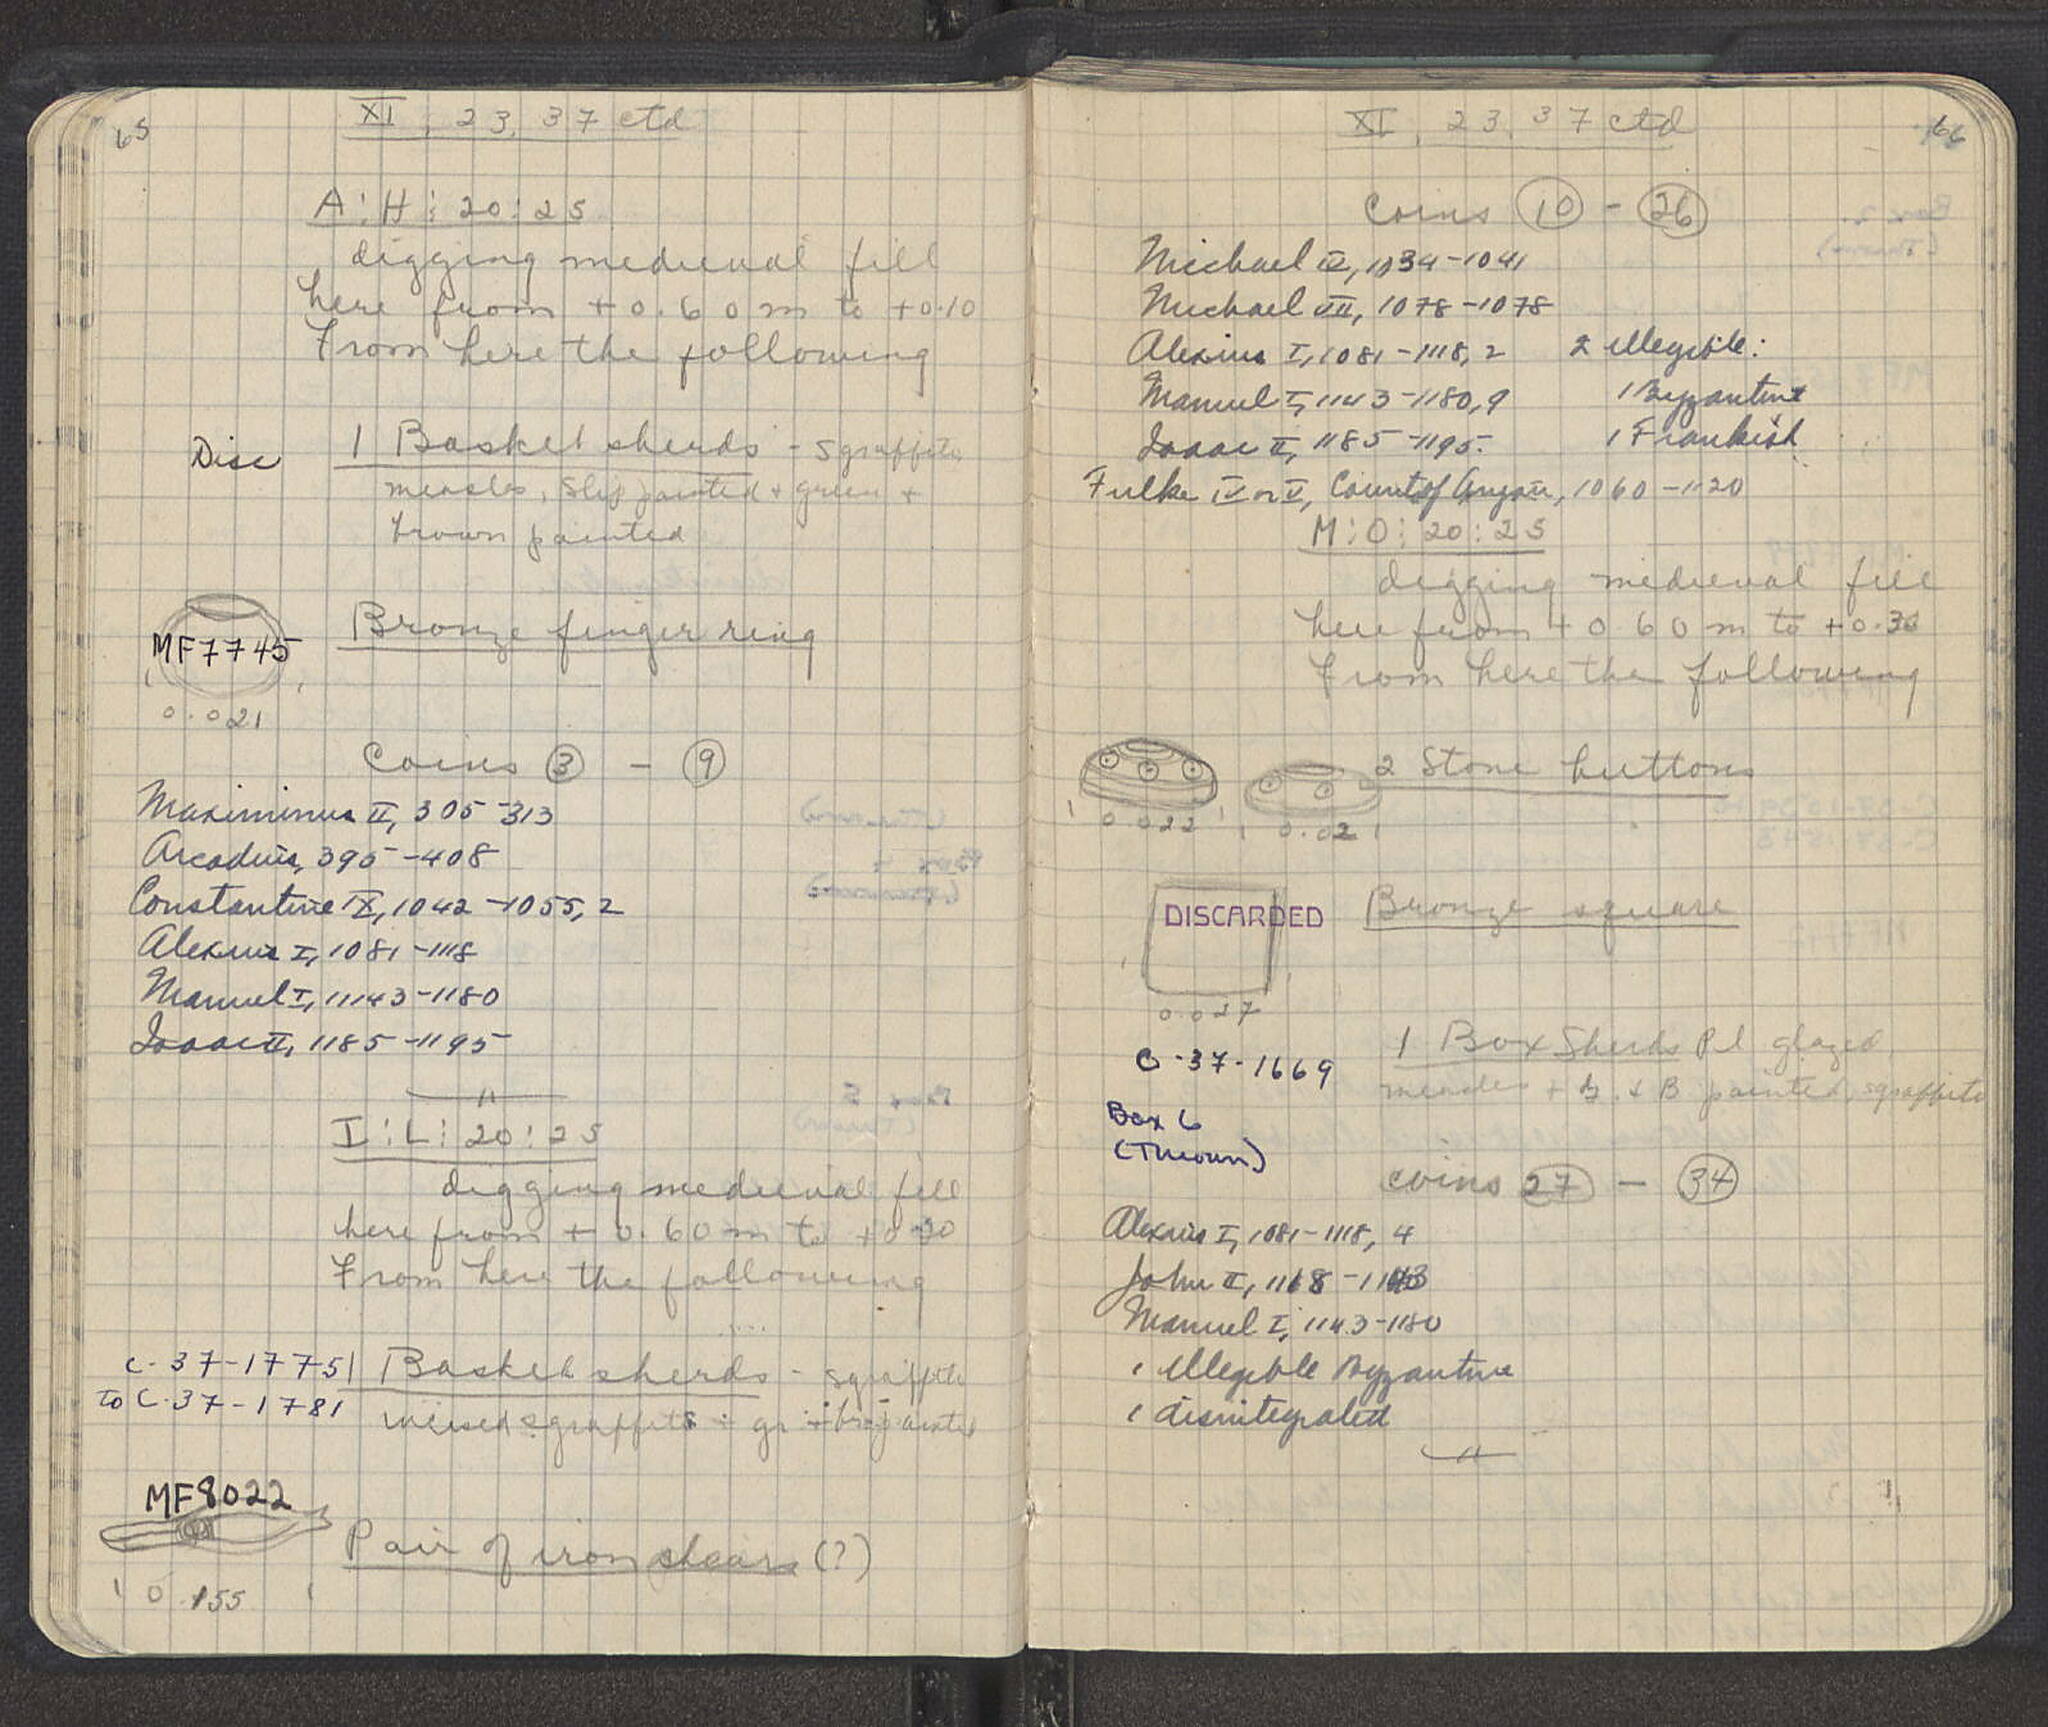 65
XI, 23, 37 ctd
A:H:20:25
digging medieval fill
here from +0.60m to +0.10
From here the following
Disc
1 Basket sherds - Sgraffito,
measles, slip painted + green +
brown painted
MF7745
0.021
Bronze finger ring
Coins 3 - 9
Maximinus II, 305-313
Arcadius, 395-408
Constantine IX, 1042-1055, 2
Alexius I, 1081-1118
Manuel I, 11143-1180
Isaac II, 1185-1195
I:L:20:25
digging medieval fill
here from +0.60m to +0.30
From here the following
C-37-1775
to C-37-1781
1 Basket sherds - sgraffito
incised sgraffito + gr + br painted
MF8022
0.155
Pair of iron shears (?)
66
XI, 23, 37 ctd
Coins 10 - 26
Michael IV, 1034-1041
Michael VII, 1078-1078
Alexius I, 1081-1118, 2
Manuel I, 1143-1180, 9
Isaac II, 1185-1195.
2 illegible:
1 Byzantine
1 Frankish
Fulke IV or V, Count of Anjou, 1060-1120
M:O:20:25
digging medieval fill
here from +0.60m to +0.30
From here the following
2 Stone buttons
0.022
0.021
DISCARDED
0.027
Bronze square
C-37-1669
Box 6
(Thrown)
1 Box Sherds Pl glazed
measles + G. & B painted, sgraffito
coins 27 - 34
Alexius I, 1081-1118, 4
John II, 1118-1143
Manuel I, 1143-1180
1 illegible Byzantine
1 disintegrated